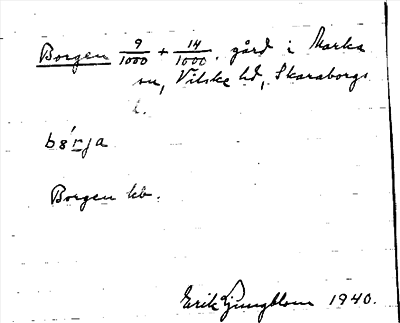 Borgen 9/1000 + 14/1000. gård i Marka
sn, Vilske hd, Skaraborgs
l.
bɞ́rja
Borgen kb.
Erik Ljungblom 1940.